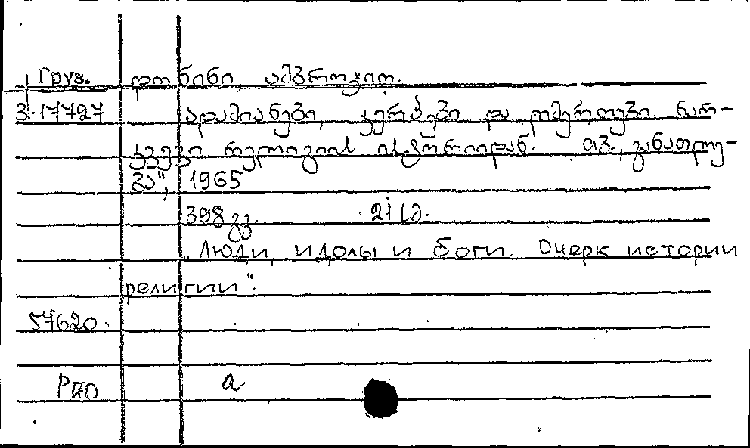 Груз. დონინი ამბროჯიო.
3.17727 ადამიანები, კერპები და ღმერთები. ნარ-
კვევი რელიგიის ისტორიიდან. თბ., „განათლე-
ბა", 1965
398 გვ.
„Люди, идолы и боги. Очерк истории
религии".
57620.
а